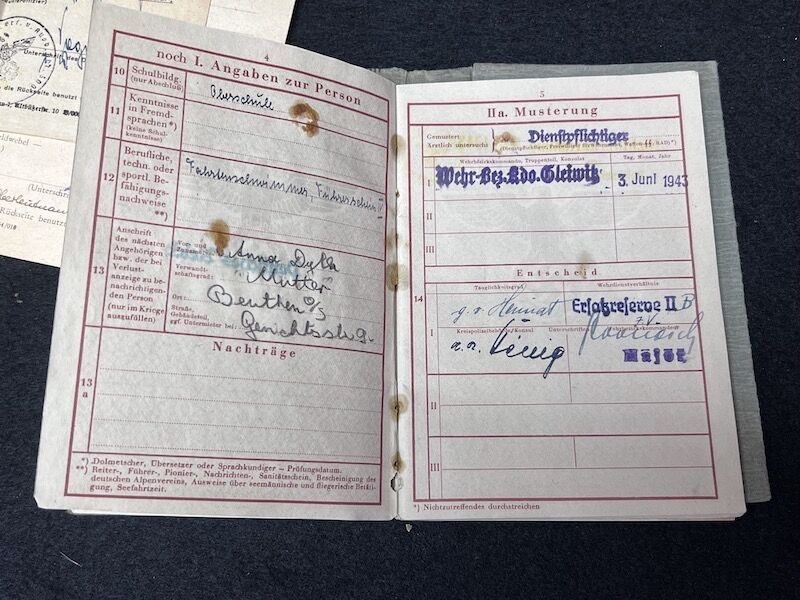 4
noch I. Angaben zur Person
10
Schulbildg.
(nur Abschluß)
Oberschule
11
Kenntnisse
in Fremd-
sprachen *)
(keine Schul-
kenntnisse)
12
Berufliche,
techn. oder
sportl. Be-
fähigungs-
nachweise
**)
Fahrtenschwimmer, Führerschein IV
13
Anschrift
des nächsten
Angehörigen
bzw. der bei
Verlust-
anzeige zu be-
nachrichtigen-
den Person
(nur im Kriege
auszufüllen)
Vor- und
Zuname:
Anna
Verwandt-
schaftsgrad:
Mutter
Ort:
Beuthen O/S
Straße,
Gebäudeteil,
ggf. Untermieter bei:
Gerichtsstr. 9.
Nachträge
13
a
*) Dolmetscher, Übersetzer oder Sprachkundiger – Prüfungsdatum.
**) Reiter-, Führer-, Pionier-, Nachrichten-, Sanitätsschein, Bescheinigung des
deutschen Alpenvereins, Ausweise über seemännische und fliegerische Betäti-
gung, Seefahrtzeit.
5
IIa. Musterung
Gemustert:
Ärztlich untersucht:
Dienstpflichtiger
(Dienstpflichtiger, Freiwilliger für Wehrmacht, Waffen-SS, RAD) *)
Wehrbezirkskommando, Truppenteil, Konsulat
Tag, Monat, Jahr
I
Wehr-Bez.Kdo. Gleiwitz
3. Juni 1943
II
III
Entscheid
14
Tauglichkeitsgrad
Wehrdienstverhältnis
g. v. Heimat
Ersatzreserve II B
I
Kreispolizeibehörde/Konsul
Unterschriften
Major
II
III
*) Nichtzutreffendes durchstreichen